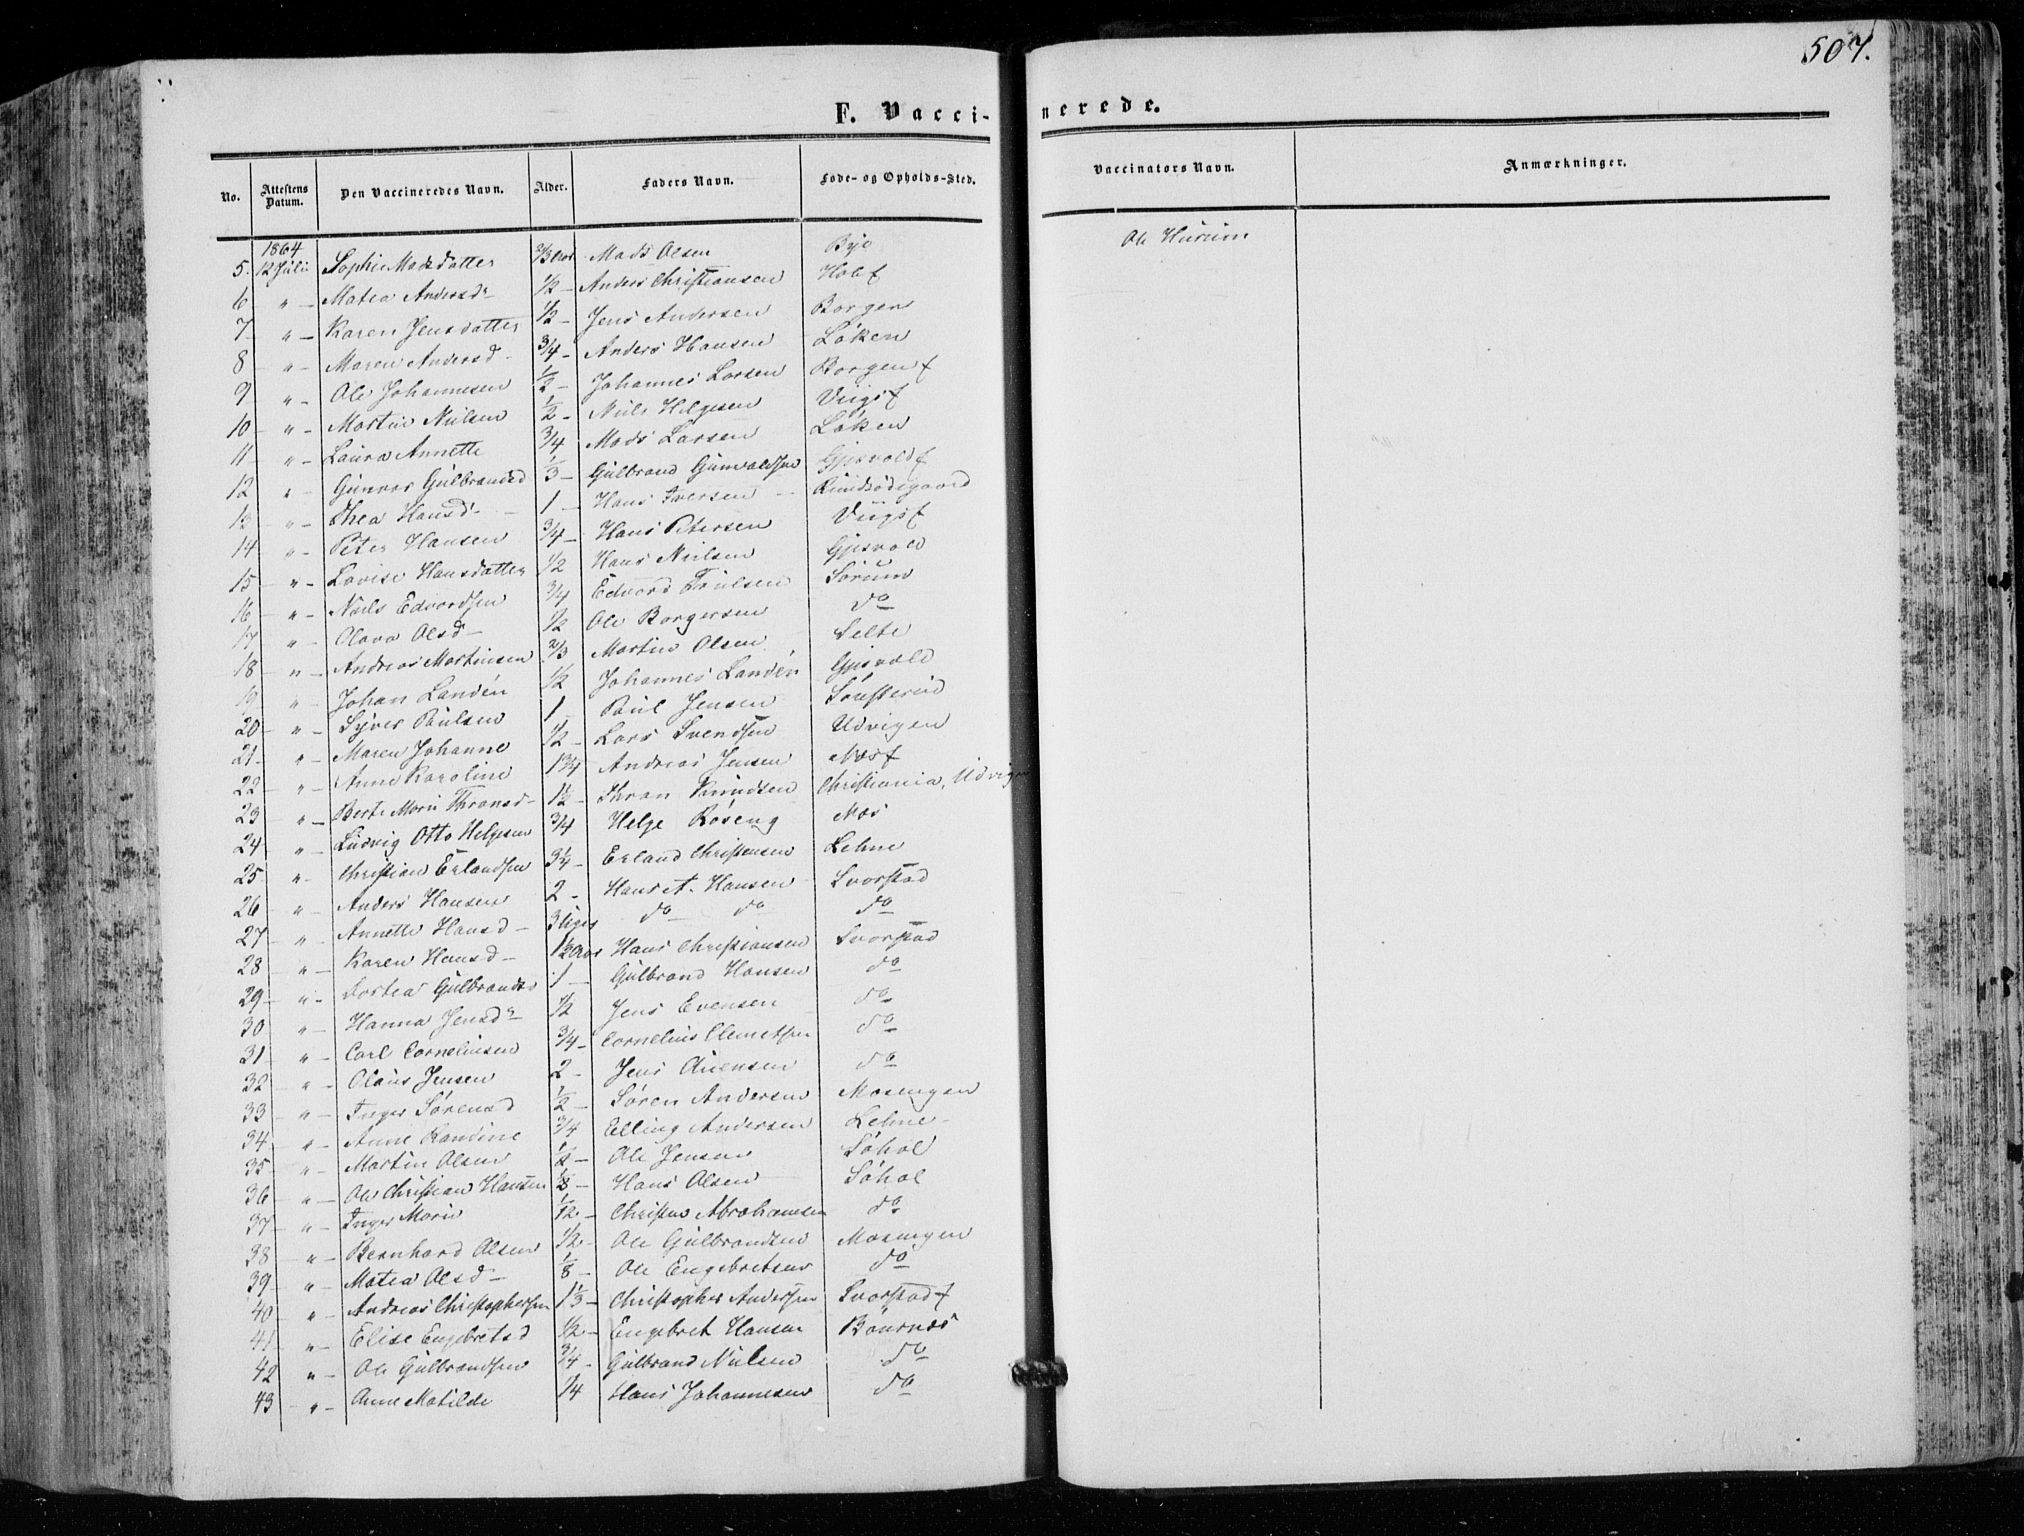 507.
F. Vaccinerede.
No. Attestens Datum. Den Vaccineredes Navn. Alder. Faders Navn. Føde- og Opholds-Sted. Vaccinators Navn. Anmærkninger.
1864
5. 12 Juli Sophie Madsdatter 2/3 Aar Mads Olsen Bye Ole Hurum
6 " Matea Andersd 1/2 Anders Christiansen Hole f
7 " Karen Jensdatter 1/2 Jens Andersen Borgen
8 " Maren Andersd 3/4 Anders Hansen Løken
9 " Ole Johannesen 1/2 Johannes Larsen Borgen f
10 " Martin Nielsen 1/2 Niels Helgesen Viigs f
11 " Laura Annette 3/4 Mads Larsen Løken
12 " Gunvor Gulbrandsd 1/3 Gulbrand Gunvaldsen Gjesvold f
13 " Thea Hansd 1 Hans Iversen Rundsødegaard
14 " Peter Hansen 3/4 Hans Petersen Viigs f
15 " Lovise Hansdatter 1/2 Hans Nielsen Gjesvold
16 " Niels Edvardsen 3/4 Edvard Poulsen Sørum
17 " Olava Olsd 1/2 Ole Borgersen do
18 " Andreas Martinsen 2/3 Martin Olsen Selte
19 " Johan Landén 1/2 Johannes Landén Gjesvold
20 " Syver Paulsen 1 Paul Jensen Sønsterud
21 " Maren Johanne 1/2 Lars Svendsen Udvigen
22 " Anne Karoline 1 3/4 Andreas Jensen Næs f
23 " Berte Marie Thronsd 1 1/2 Thron Knudsen Christiania, Udvigen
24 " Ludvig Otto Helgesen 3/4 Helge Røseng Næs
25 " Christian Erlandsen 3 1/4 Erland Christensen Lehne
26 " Anders Hansen 2 Hans A. Hansen Svarstad
27 " Annette Hansd 3 Uger do do do
28 " Karen Hansd 1 1/2 Aar Hans Christiansen Svarstad
29 " Dortea Gulbrandsd 1 Gulbrand Hansen do
30 " Hanna Jensd 1/2 Jens Evensen do
31 " Carl Corneliusen 3/4 Cornelius Clemetsen do
32 " Olaus Jensen 2 Jens Auensen do
33 " Inger Sørensd 1/2 Søren Andersen Mosengen
34 " Anne Randine 3/4 Elling Andersen Lehne
35 " Martin Olsen 1/2 Ole Jensen Søhol
36 " Ole Christian Hansen 1/8 Hans Olsen Søhol
37 " Inger Marie 1/12 Christen Abrahamsen do
38 " Bernhard Olsen 1/2 Ole Gulbrandsen Mosengen
39 " Matea Olsd 1/8 Ole Engebretsen do
40 " Andreas Christophersen 1 1/3 Christopher Andersen Svarstad f
41 " Elise Engebretsd 1/2 Engebret Hansen Bønsnæs
42 " Ole Gulbrandsen 3/4 Gulbrand Nielsen do
43 " Anne Matilde 1/4 Hans Johannesen do